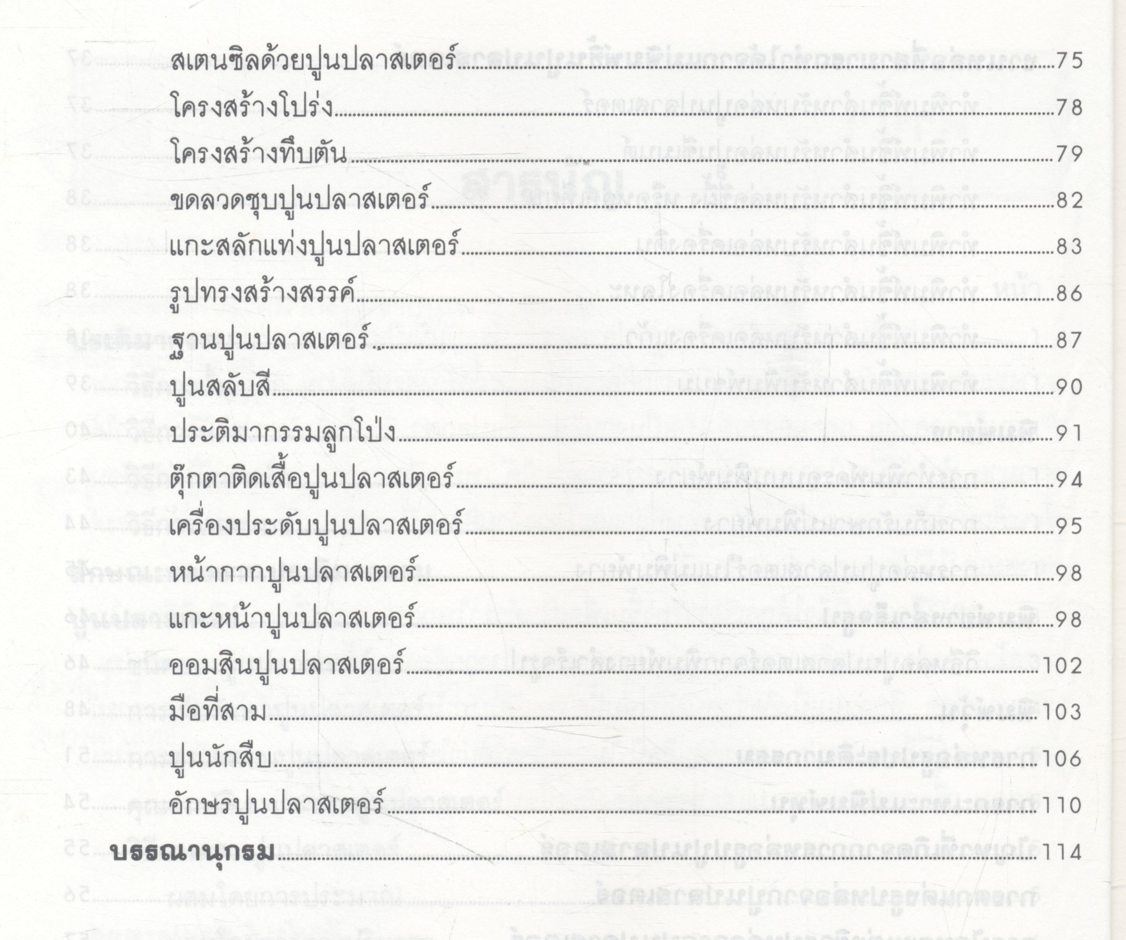 สเตนซิลด้วยปูนปลาสเตอร์ 75
โครงสร้างโปร่ง 78
โครงสร้างทึบตัน 79
ขดลวดชุบปูนปลาสเตอร์ 82
แกะสลักแท่งปูนปลาสเตอร์ 83
รูปทรงสร้างสรรค์ 86
ฐานปูนปลาสเตอร์ 87
ปูนสลับสี 90
ประติมากรรมลูกโป่ง 91
ตุ๊กตาติดเสื้อปูนปลาสเตอร์ 94
เครื่องประดับปูนปลาสเตอร์ 95
หน้ากากปูนปลาสเตอร์ 98
แกะหน้าปูนปลาสเตอร์ 98
ออมสินปูนปลาสเตอร์ 102
มือที่สาม 103
ปูนนักสืบ 106
อักษรปูนปลาสเตอร์ 110
บรรณานุกรม 114